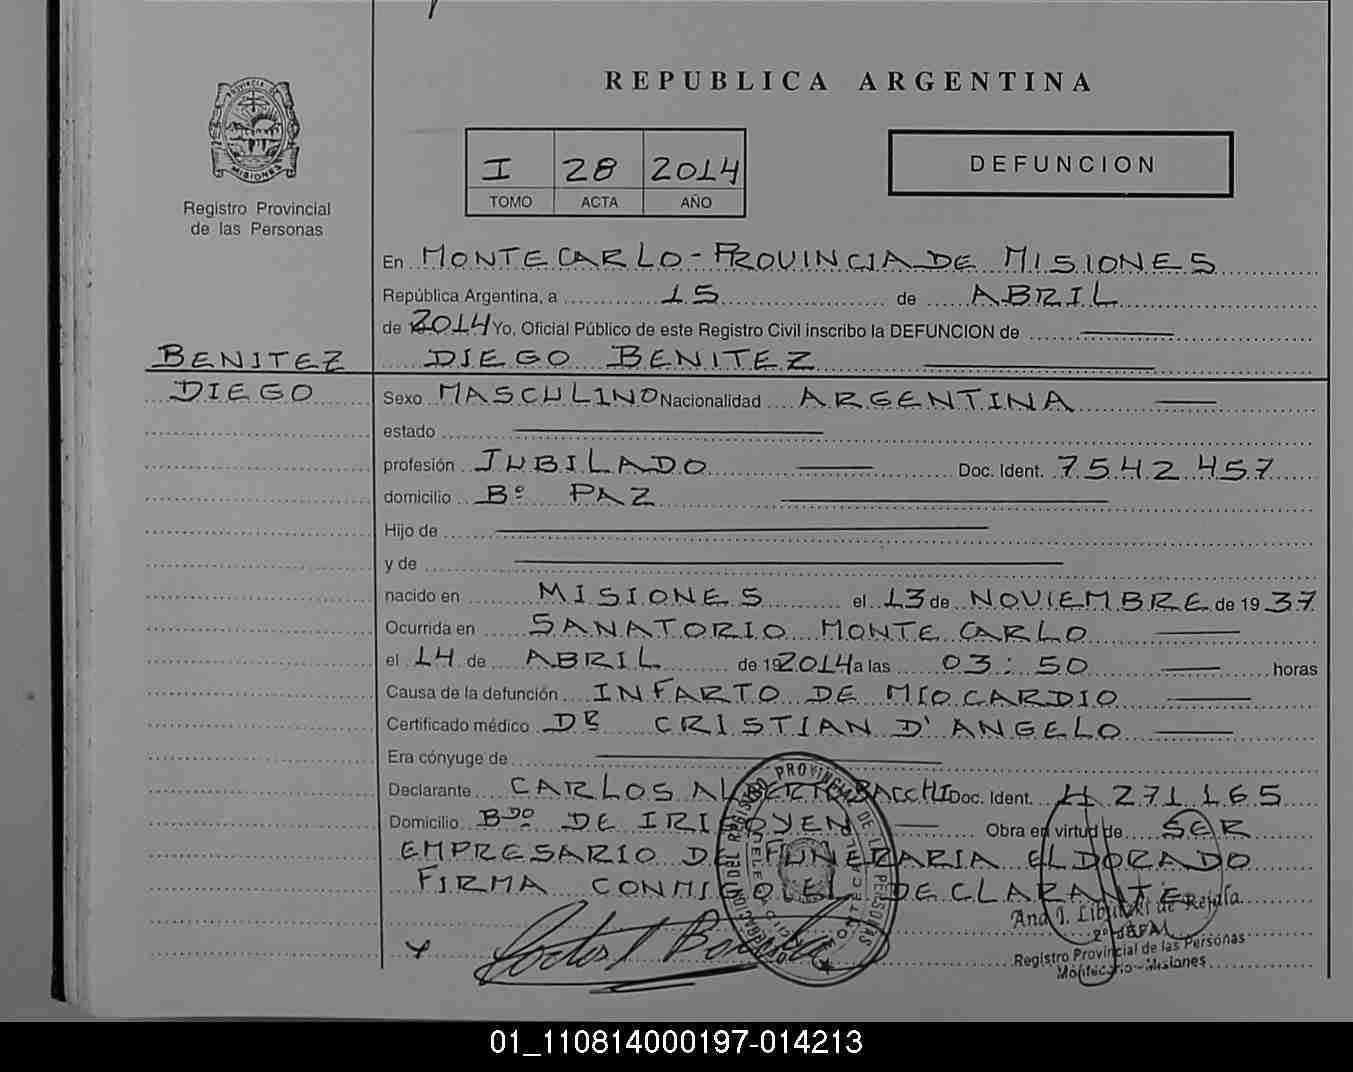 REPUBLICA ARGENTINA
PROVINCIA DE
MISIONES
Registro Provincial
de las Personas
I 28 2014
TOMO ACTA AÑO
DEFUNCION
En MONTECARLO - PROVINCIA DE MISIONES
República Argentina, a 15 de ABRIL
de 2014 Yo, Oficial Público de este Registro Civil inscribo la DEFUNCION de
BENITEZ DIEGO BENITEZ
DIEGO Sexo MASCULINO Nacionalidad ARGENTINA
estado
profesión JUBILADO Doc. Ident. 7542457
domicilio Bº PAZ
Hijo de
y de
nacido en MISIONES el 13 de NOVIEMBRE de 1937
Ocurrida en SANATORIO MONTECARLO
el 14 de ABRIL de 192014 a las 03:50 horas
Causa de la defunción INFARTO DE MIOCARDIO
Certificado médico DR CRISTIAN D'ANGELO
Era cónyuge de
Declarante CARLOS ALBERTO BACCHI Doc. Ident. 11271165
Domicilio Bdo DE IRIGOYEN Obra en virtud de SER
EMPRESARIO DE FUNERARIA ELDORADO
FIRMA CONMIGO EL DECLARANTE
REGISTRO PROVINCIAL DE LAS PERSONAS
Ana I. de Rejala
Registro Provincial de las Personas
Montecarlo - Misiones
01_110814000197-014213